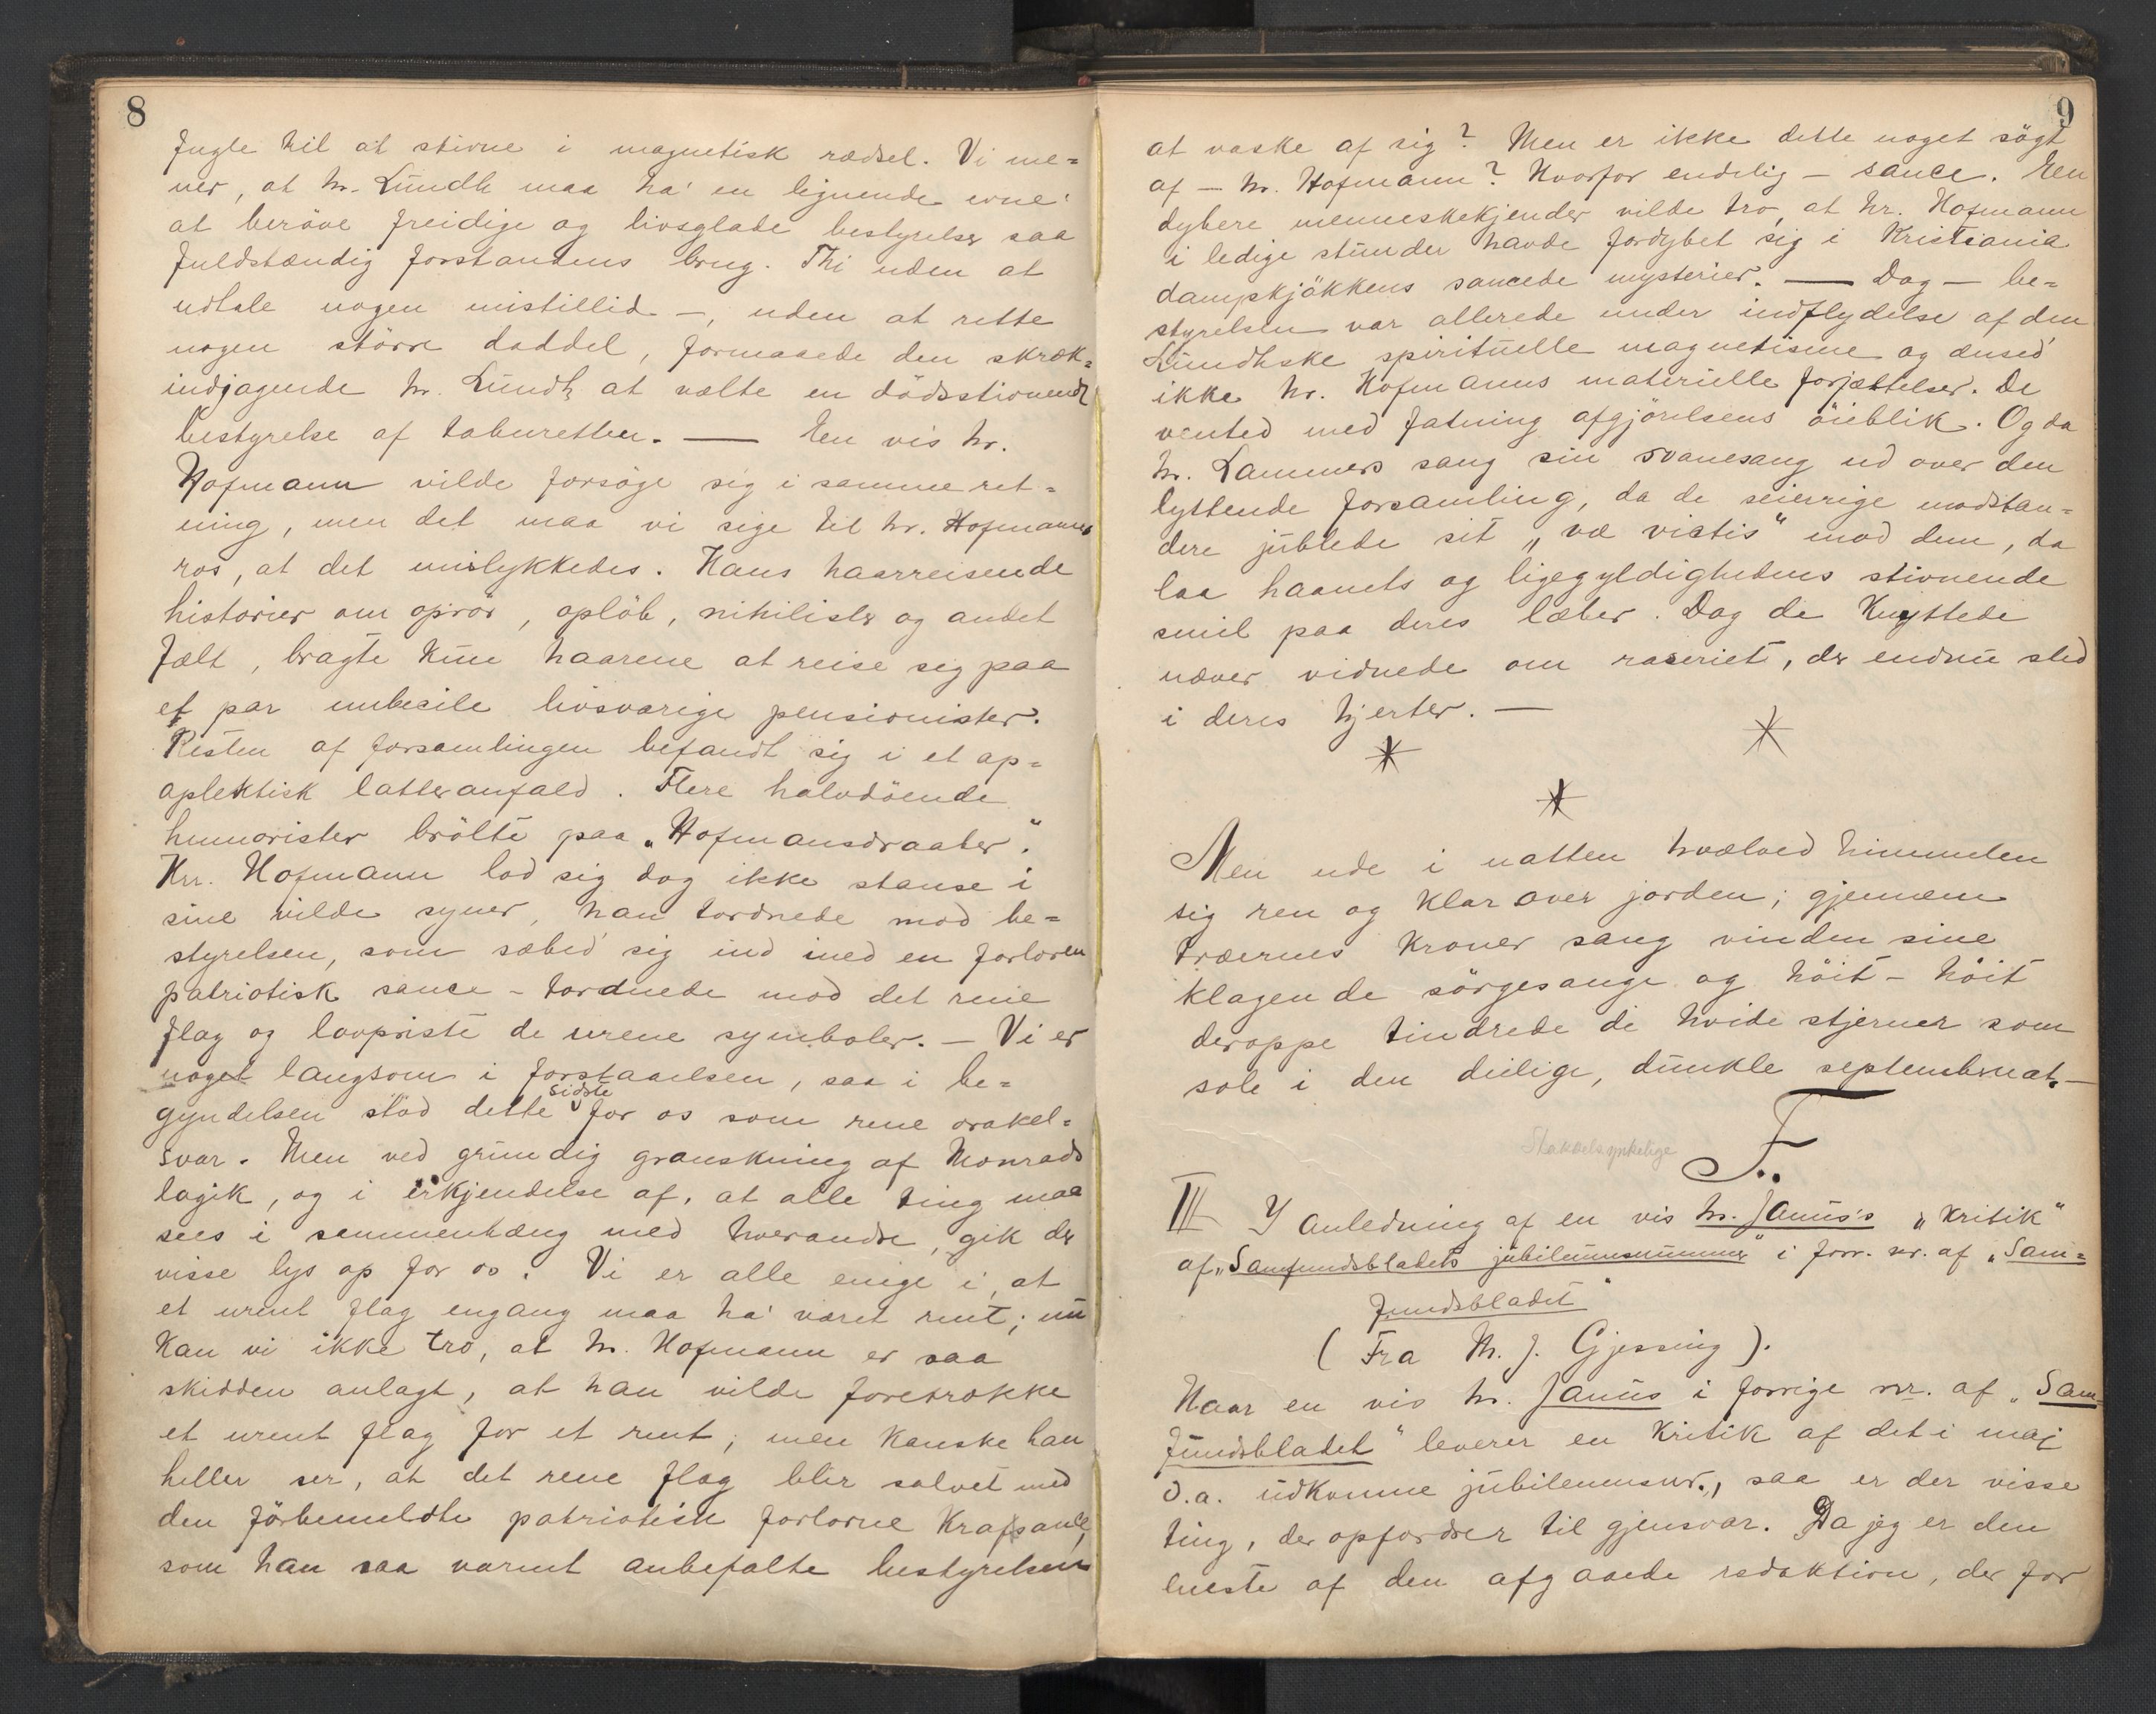 8
fugle til at stivne i magnetisk rædsel. Vi me=
ner, at hr. Lundh maa ha' en lignende evne:
at beröve freidige og livsglade bestyrelser saa
fuldstændig forstandens brug. Thi uden at
udtale nogen mistillid —, uden at rette
nogen större daddel, formaaede den skræk=
indjagende hr. Lundh at vælte en dödsstivnende
bestyrelse af taburetten. — En vis hr.
Hofmann vilde forsöge sig i samme ret=
ning, men det maa vi sige til hr. Hofmanns
ros, at det mislykkedes. Hans haarreisende
historier om oprör, oplöb, nihilister og andet
fælt, bragte kun haarene at reise sig paa
et par imbecile livsvarige pensionister.
Resten af forsamlingen befandt sig i et ap=
oplektisk latteranfald. Flere halvdöende
humorister brölte paa „Hofmansdraaber".
Hr. Hofmann lod sig dog ikke stanse i
sine vilde syner, han tordnede mod be=
styrelsen, som sæbed' sig ind med en forloren
patriotisk sauce – tordnede mod det rene
flag og lovpriste de urene symboler. — Vi er
noget langsom i forstaaelsen, saa i be=
gyndelsen stod dette sidste for os som rene orakel=
svar. Men ved grundig granskning af Monrads
logik, og i erkjendelse af, at alle ting maa
sees i sammenhæng med hverandre, gik der
visse lys op for os. Vi er alle enige i, at
et urent flag engang maa ha' været rent; nu
kan vi ikke tro, at hr. Hofmann er saa
skidden anlagt, at han vilde foretrække
et urent flag for et rent; men kanske han
heller ser, at det rene flag blir salvet med
den förbemeldte patriotisk forlorne Krafsauce,
som han saa varmt anbefalte bestyrelsen
9
at vaske af sig? Men er ikke dette noget sögt
af — hr. Hofmann? Hvorfor endelig — sauce. En
dybere menneskekjender vilde tro, at hr. Hofmann
i ledige stunder havde fordybet sig i Kristiania
dampkjökkens saucede mysterier. — Dog — be=
styrelsen var allerede under indflydelse af den
Lundhske spirituelle magnetisme og ænsed'
ikke hr. Hofmanns materielle forjættelser. De
vented med fatning afgjörelsens öieblik. Og da
hr. Lammers sang sin svanesang ud over den
lyttende forsamling, da de seierrige modstan=
dere jublede sit „væ victis" mod dem, da
laa haanets og ligegyldighedens stivnende
smil paa deres læber. Dog de knyttede
næver vidnede om raseriet, der endnu sled
i deres hjerter. —
Men ude i natten hvælved himmelen
sig ren og klar over jorden; gjennem
træernes kroner sang vinden sine
klagende sörgesange og höit – höit
deroppe tindrede de hvide stjerner som
sole i den deilige, dunkle septembernat. —
F.
III I anledning af en vis hr. Janus's „kritik"
af „Samfundsbladets jubilæumsnummer" i forr. nr. af „Sam=
fundsbladet"
(Fra M. J. Gjessing).
Naar en vis hr. Janus i forrige nr. af „Sam=
fundsbladet" leverer en kritik af det i maj
d.a. udkomne jubilæumsnr., saa er der visse
ting, der opfordrer til gjensvar. Da jeg er den
eneste af den afgaaede redaktion, der for